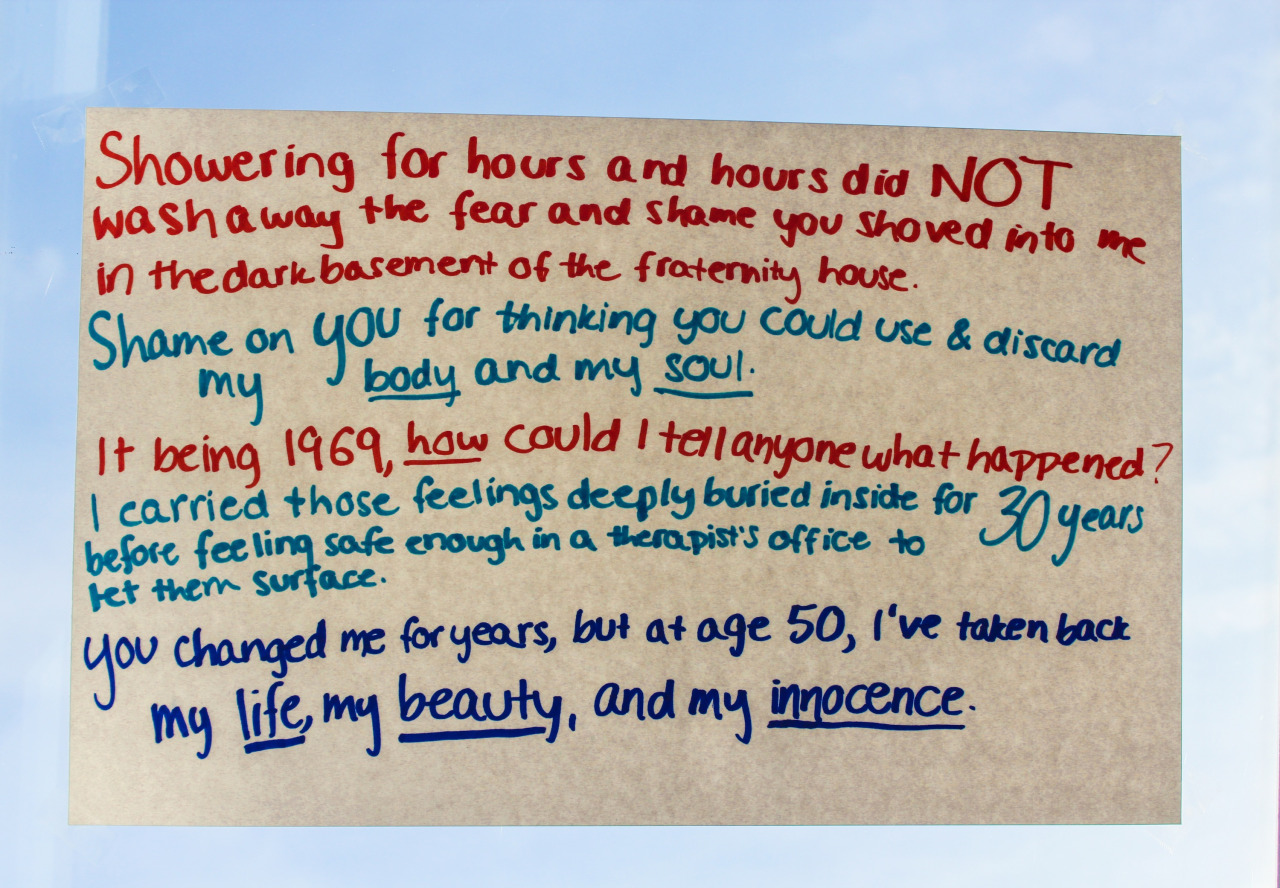 Showering for hours and hours did NOT
wash away the fear and shame you shoved into me
in the dark basement of the fraternity house.
Shame on you for thinking you could use & discard
my body and my soul.
It being 1969, how could I tell anyone what happened?
I carried those feelings deeply buried inside for 30 years
before feeling safe enough in a therapist's office to
let them surface.
You changed me for years, but at age 50, I've taken back
my life, my beauty, and my innocence.